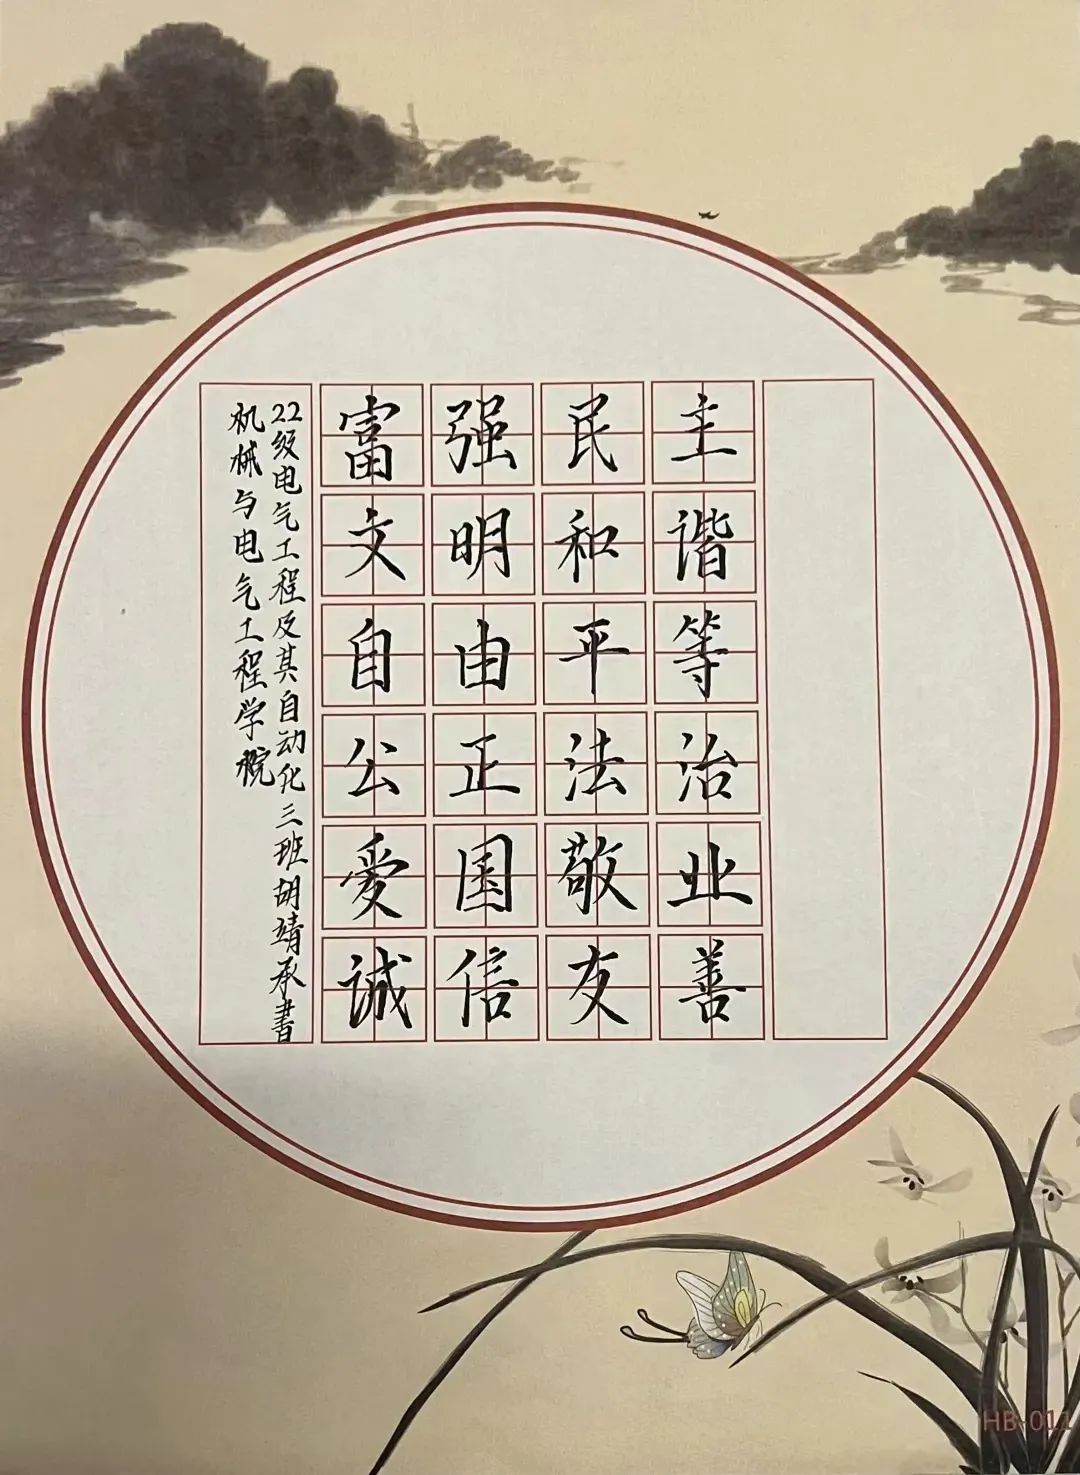 富强民主
文明和谐
自由平等
公正法治
爱国敬业
诚信友善
22级电气工程及其自动化三班胡靖承書
机械与电气工程学院
HB-011